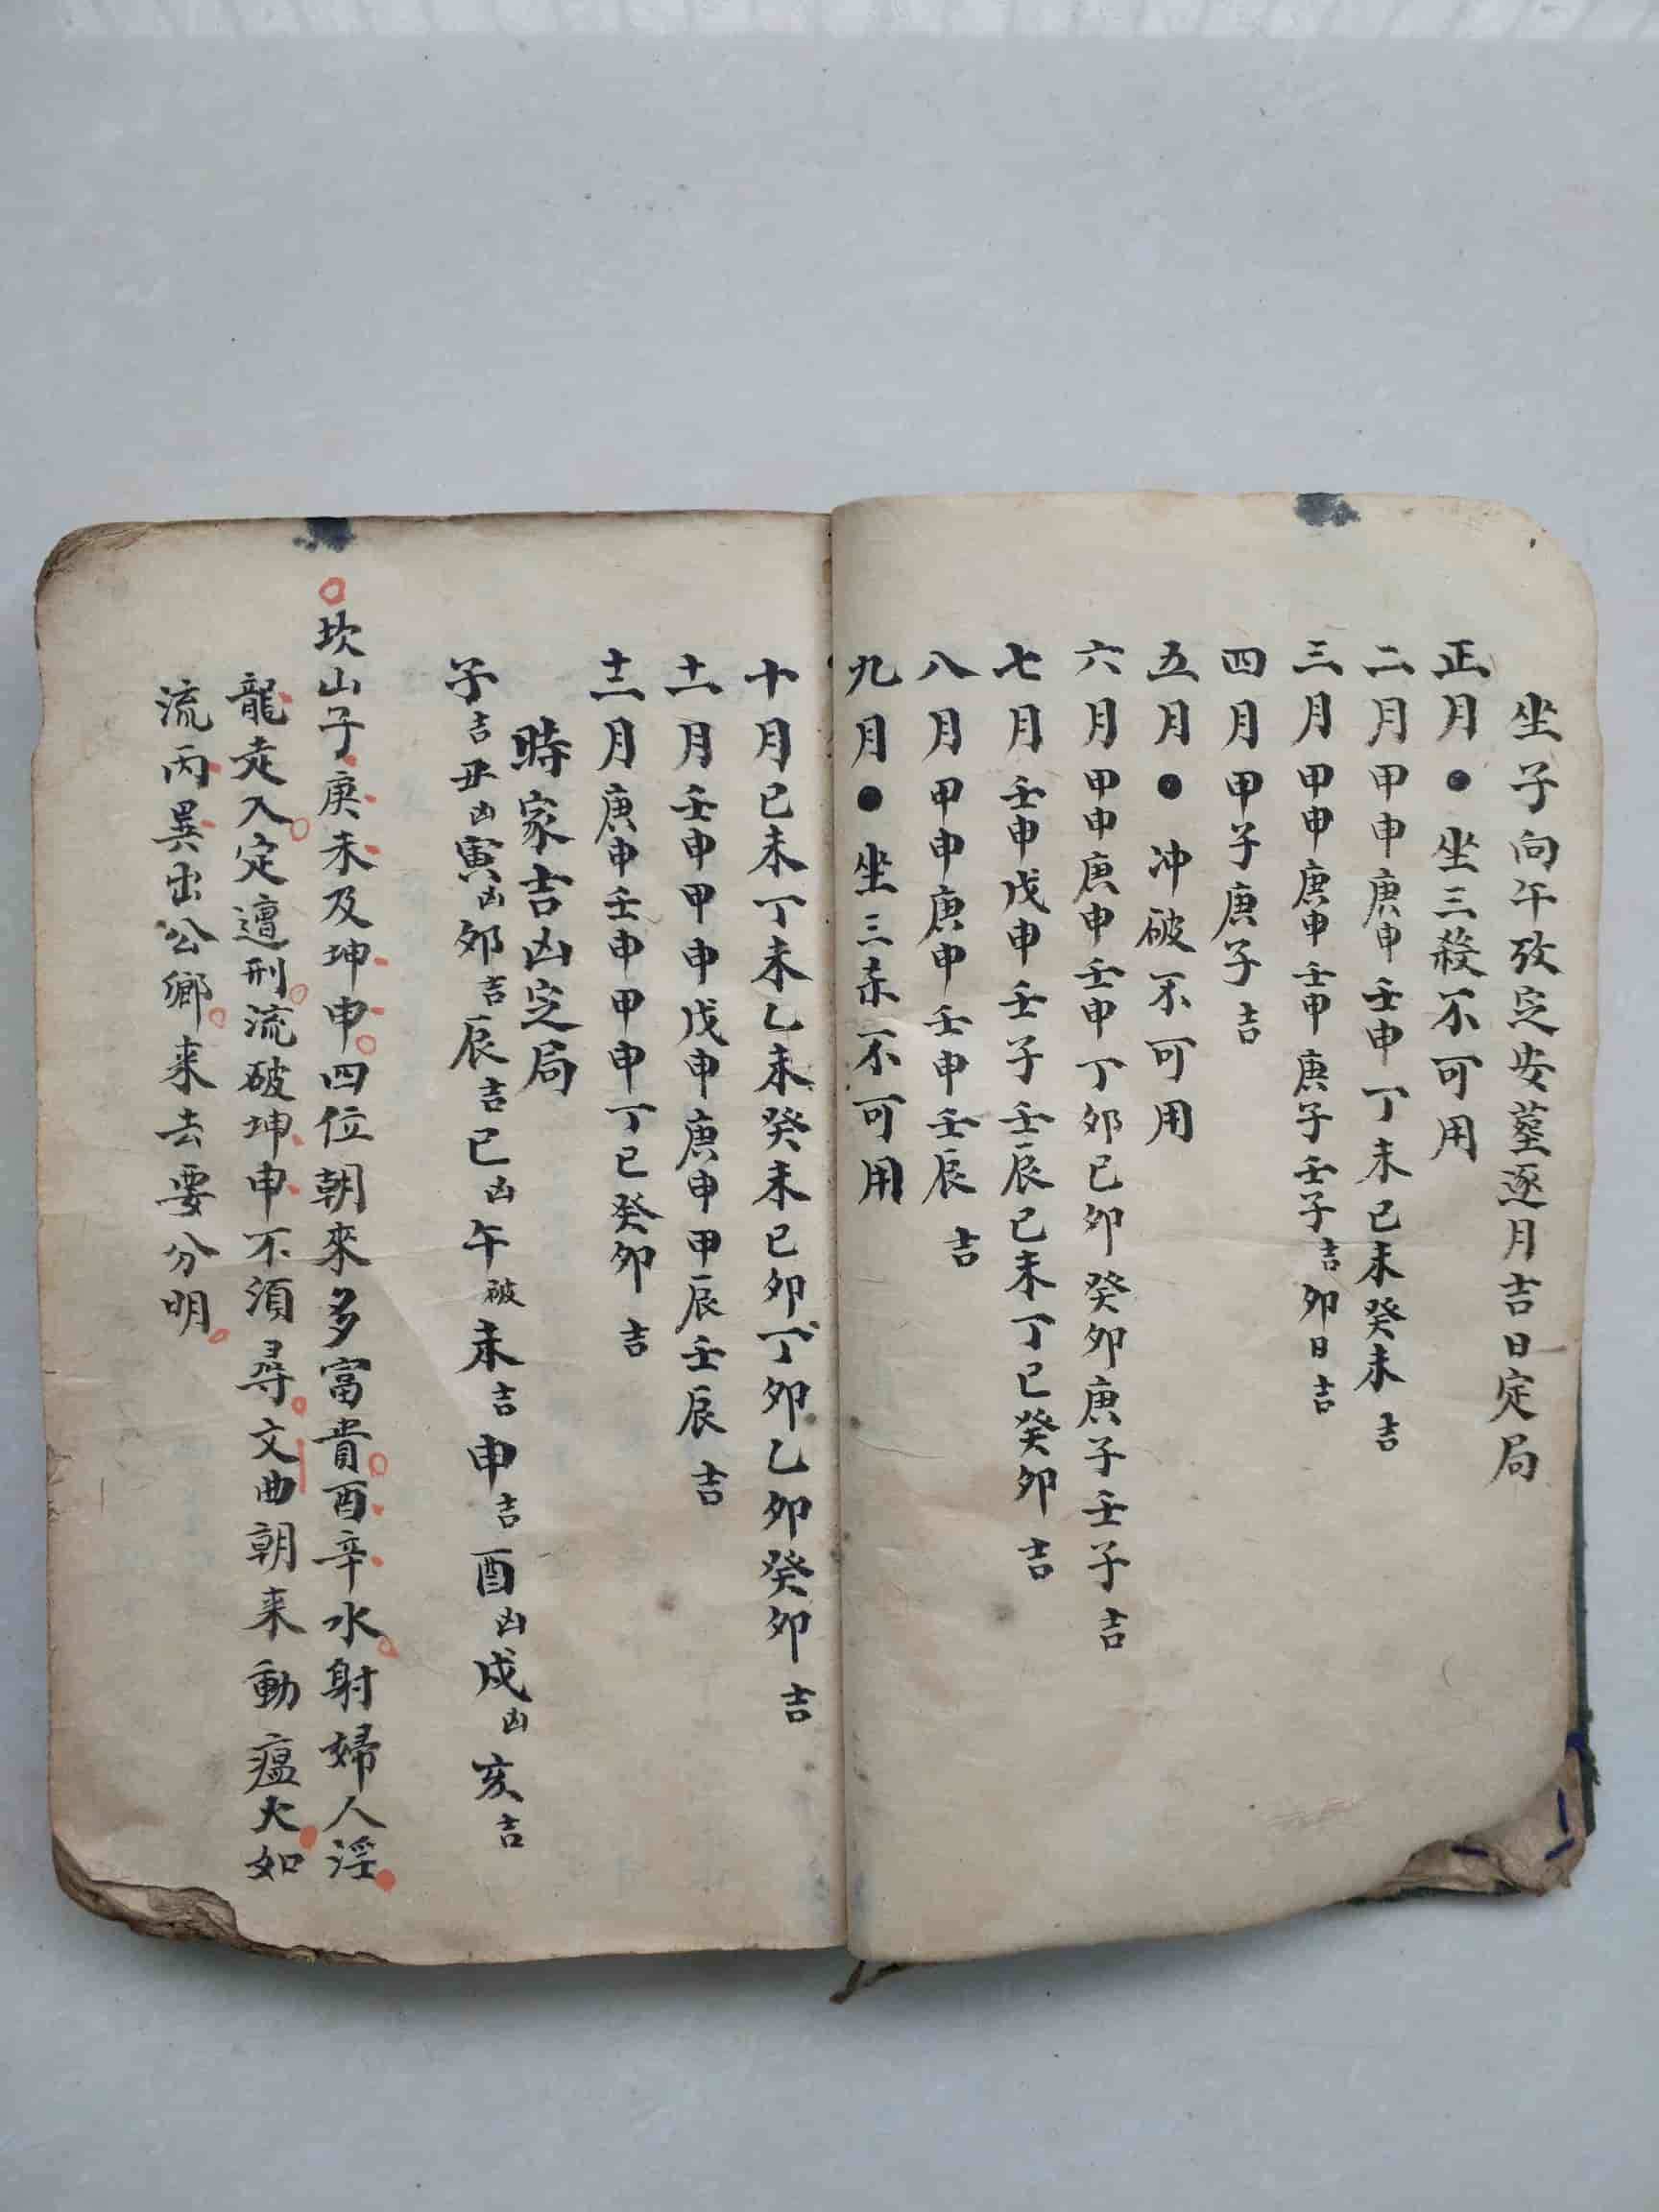 坐子向午攷定安葬逐月吉日定局
正月●坐三殺不可用
二月甲申庚申壬申丁未己未癸未吉
三月甲申庚申壬申庚子壬子吉卯日吉
四月甲子庚子吉
五月●冲破不可用
六月甲申庚申壬申丁卯己卯癸卯庚子壬子吉
七月壬申戊申壬子壬辰己未丁巳癸卯吉
八月甲申庚申壬申壬辰吉
九月●坐三杀不可用
十月己未丁未乙未癸未己卯丁卯乙卯癸卯吉
十一月壬申甲申戊申庚申甲辰壬辰吉
十二月庚申壬申甲申丁巳癸卯吉
時家吉凶定局
子吉丑凶寅凶卯吉辰吉巳凶午破未吉申吉酉凶戌凶亥吉
坎山子庚未及坤申四位朝來多富貴酉辛水射婦人淫
龍走入定遭刑流破坤申不須尋文曲朝来動瘟火如
流丙巽出公鄉来去要分明